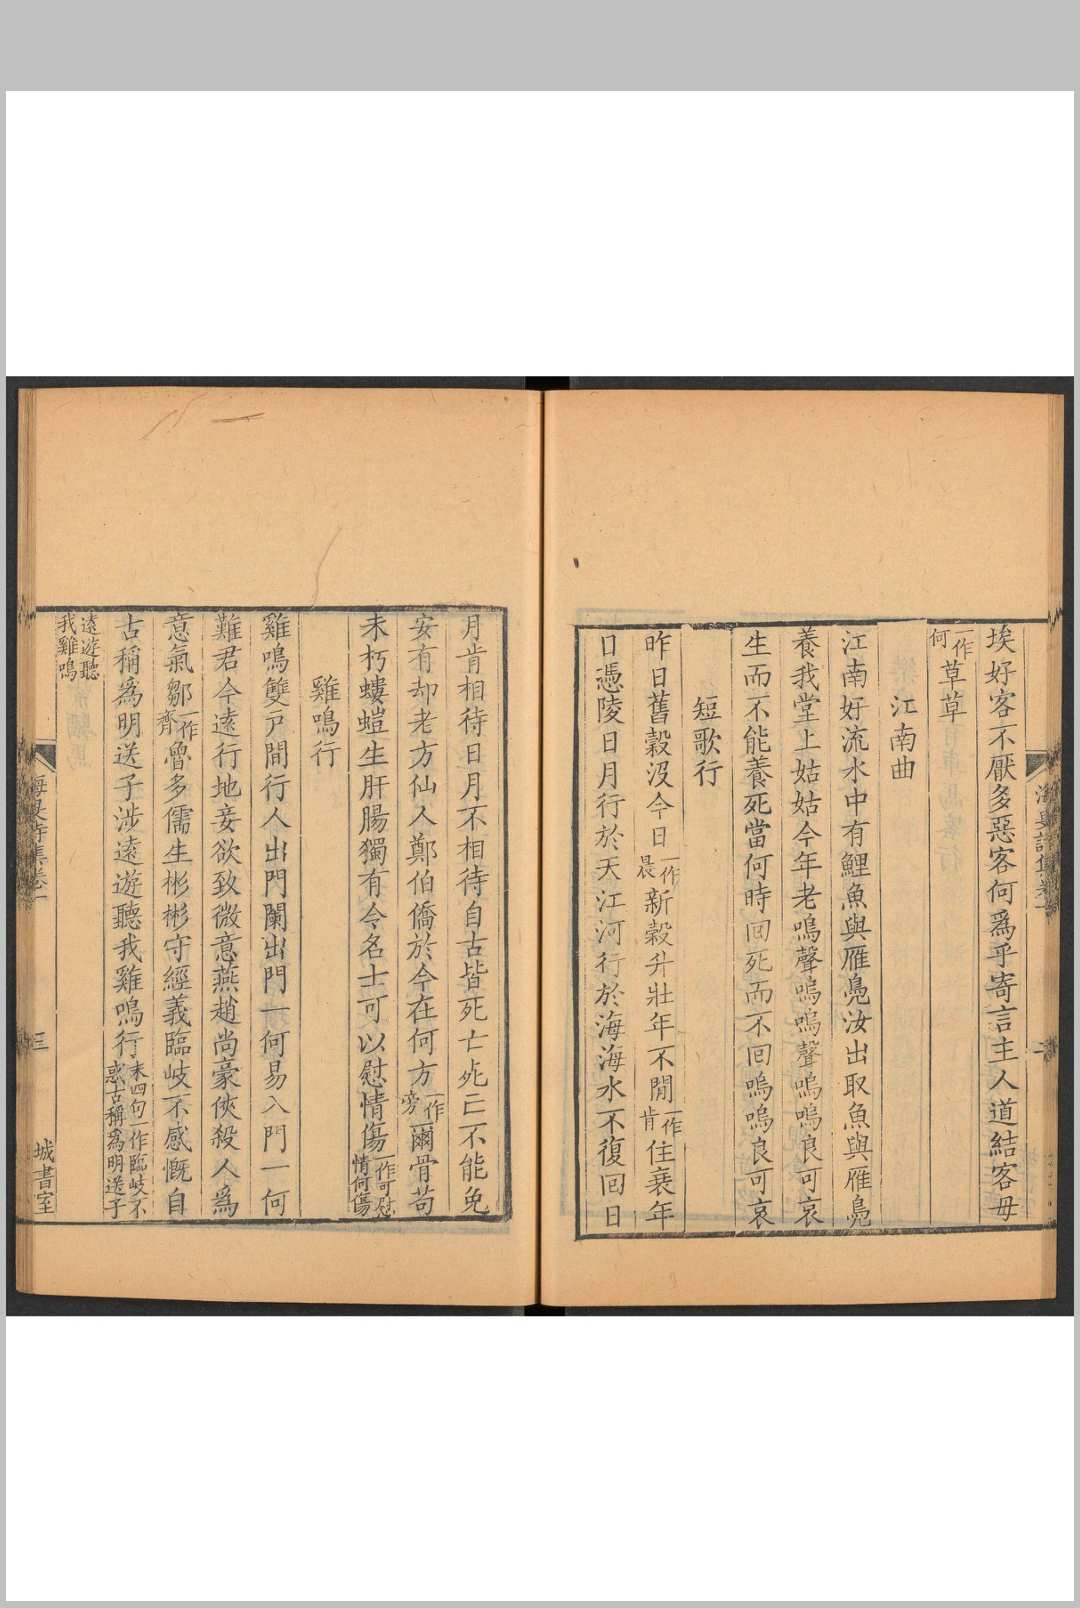 埃好客不厭多惡客何爲乎寄言主人道結客毋
一作何草草
江南曲
江南好流水中有鯉魚與雁鳧汝出取魚與雁鳧
養我堂上姑姑今年老嗚聲嗚嗚聲嗚嗚良可哀
生而不能養死當何時回死而不回嗚嗚良可哀
短歌行
昨日舊穀沒今日一作晨新穀升壯年不閒一作肯住衰年
日憑陵日月行於天江河行於海海水不復回日
月肯相待日月不相待自古皆死亡死亡不能免
安有却老方仙人鄭伯僑於今在何方一作旁爾骨苟
未朽螻螘生肝腸獨有令名士可以慰情傷一作可慰情何傷
雞鳴行
雞鳴雙戸間行人出門闌出門一何易入門一何
難君今遠行地妾欲致微意燕趙尚豪俠殺人爲
意氣鄒一作齊魯多儒生彬彬守經義臨岐不感慨自
古稱爲明送子涉遠遊聽我雞鳴行末四句一作臨岐不惑古稱爲明送子
遠遊聽我雞鳴
三
城書室